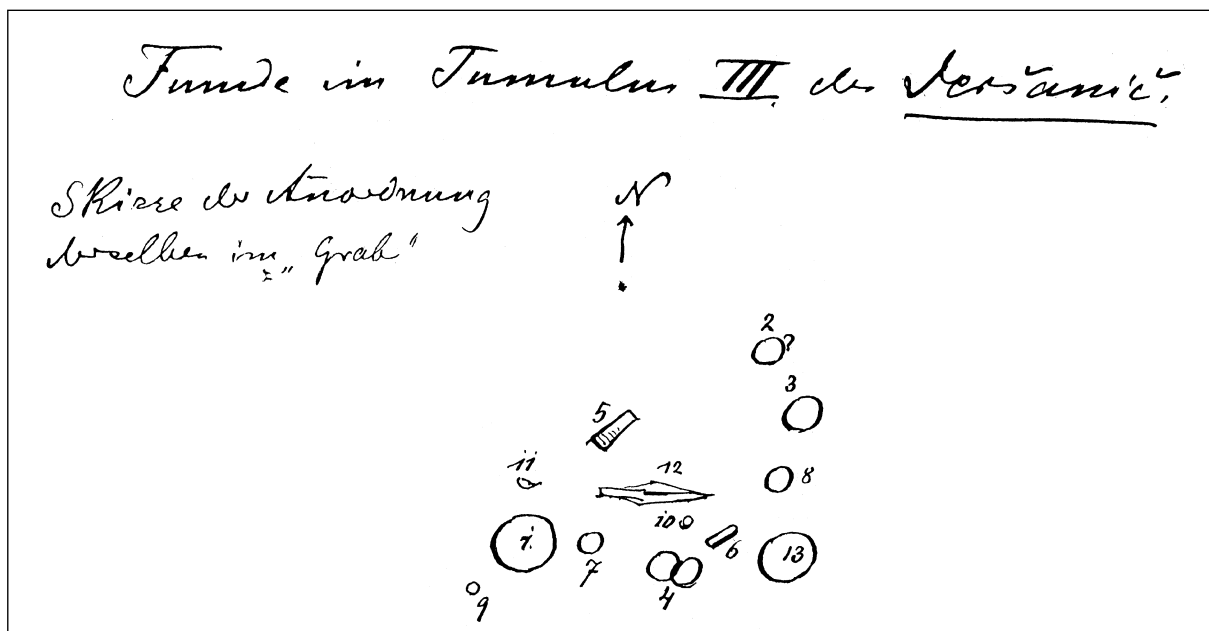 Funde im Tumulus III. des Deršanič.
Skizze der Anordnung
derselben im „Grab“
N
2
?
3
5
11
12
8
10
1.
7
6
13
4
9